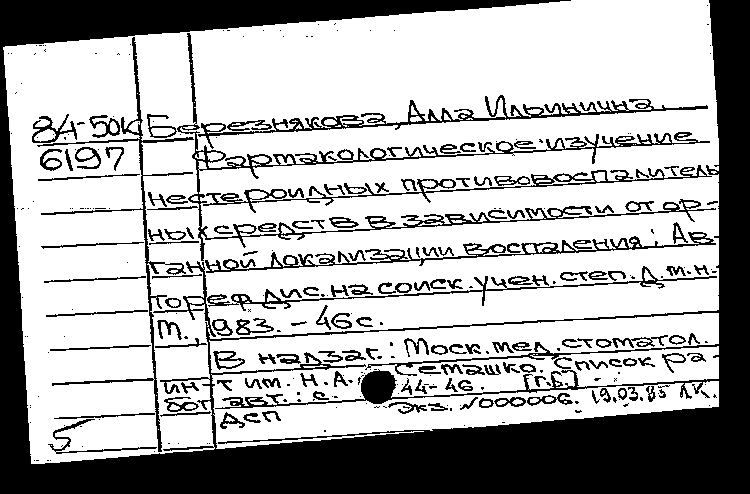 84-50к Березнякова, Алла Ильинична.
6197 Фармакологическое изучение
нестероидных противовоспалитель
ных средств в зависимости от ор-
ганной локализации воспаления: Ав-
тореф. дис. на соиск. учен. степ. д.м.н.
М., 1983. - 46 с.
В надзаг.: Моск. мед. стоматол.
ин-т им. Н.А. Семашко. Список ра-
бот авт.: с. 44-46. [г.б.]
ДСП Экз. N000006. 19.03.85 Л.К.
5